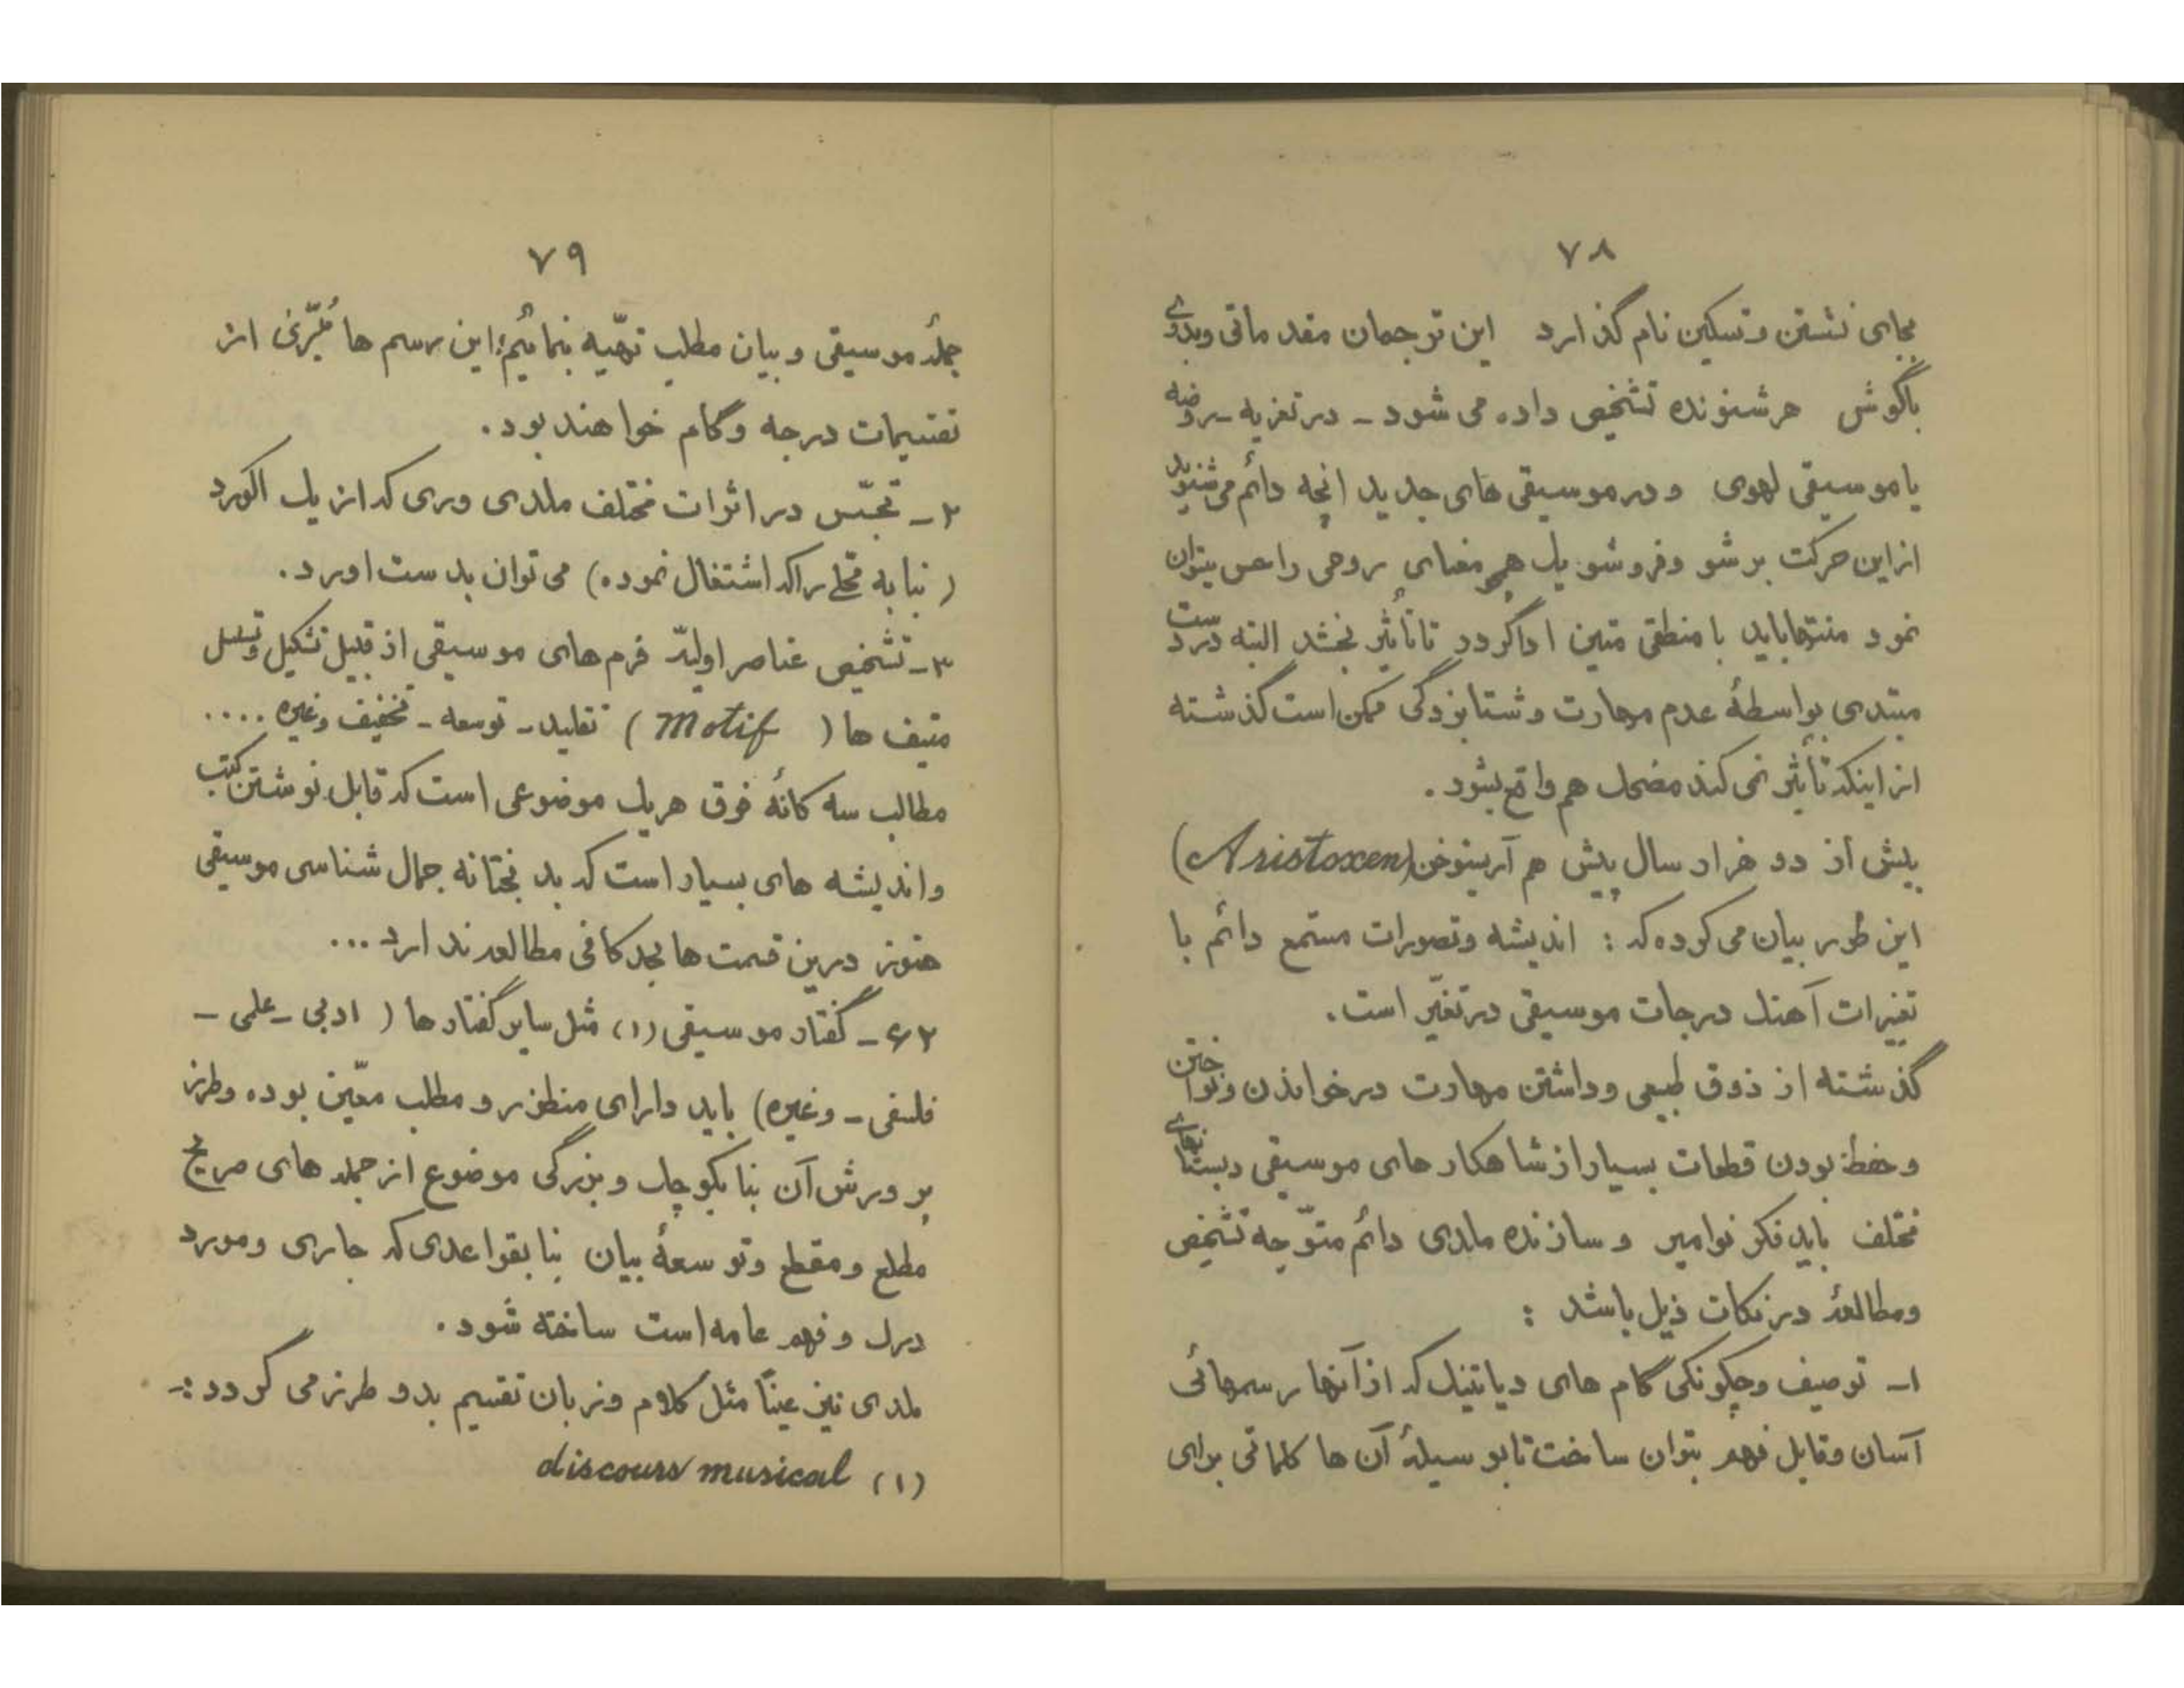 ۷۸
بجای نشستن و تسکین نام گذارد این توجمان مقدماتی وبدوی
باگوش هرشنونده تشخیص داده می شود - در تعزیه - روضه
یا موسیقی لهوی و در موسیقی های جدید انچه دائم می شنوید
از این حرکت برشو و فروشو یك همچه معنای روحی را حس میتوان
نمود منتهاباید با منطقی متین اداگردد تا تأثیر بخشد البته دردست
مبتدی بواسطهٔ عدم مهارت وشتابزدگی ممکن است گذشته
از اینکه تأثیر نمی کند مضحك هم واقع بشود .
بیش از دو هزار سال پیش هم آریستوخن (Aristoxen)
این طور بیان می کرده که : اندیشه وتصورات مستمع دائم با
تغیرات آهنك درجات موسیقی در تغیّر است .
گذشته از ذوق طبیعی وداشتن مهارت در خواندن ونواختن
وحفظ بودن قطعات بسیار از شاهکارهای موسیقی دبستانهای
مختلف باید فکر نوآمیز و سازنده ملدی دائم متوّجه تشخیص
ومطالعهٔ در نکات ذیل باشد :
۱- توصیف وچگونگی گام های دیاتنیك که از آنها رسمهائی
آسان وقابل فهم بتوان ساخت تا بوسیلهٔ آن ها کلماتی برای
۷۹
جملهٔ موسیقی و بیان مطلب تهّیه بنمائیم؛ این رسم ها مُبّری از
تقسیمات درجه وگام خواهند بود .
۲- تجسّس در اثرات مختلف ملدی وری که از یك اکورد
( بنا به محلی را که اشتغال نموده) می توان بدست اورد .
۳- تشخیص عناصر اولیّه فرم های موسیقی از قبیل تشکیل وتسلسل
متیف ها ( Motif ) تقلید - توسعه - تخفیف وغیره ....
مطالب سه کانهٔ فوق هریك موضوعی است که قابل نوشتن کتب
واندیشه های بسیار است که بدبختانه جمال شناسی موسیقی
هنوز درین قسمت ها بحد کافی مطالعه ندارد ...
۲۶- گفتار موسیقی (۱) مثل سایر گفتارها ( ادبی - علمی -
فلسفی - وغیره) باید دارای منظور و مطلب معّین بوده وطرز
پرورش آن بنا بکوچك و بزرگی موضوع از جمله های صریح
مطلع ومقطع وتوسعهٔ بیان بنا بقواعدی که جاری ومورد
درك وفهم عامه است ساخته شود .
ملدی نیز عیناً مثل کلام وزبان تقسیم بدو طرز می گردد :-
(۱) discours musical